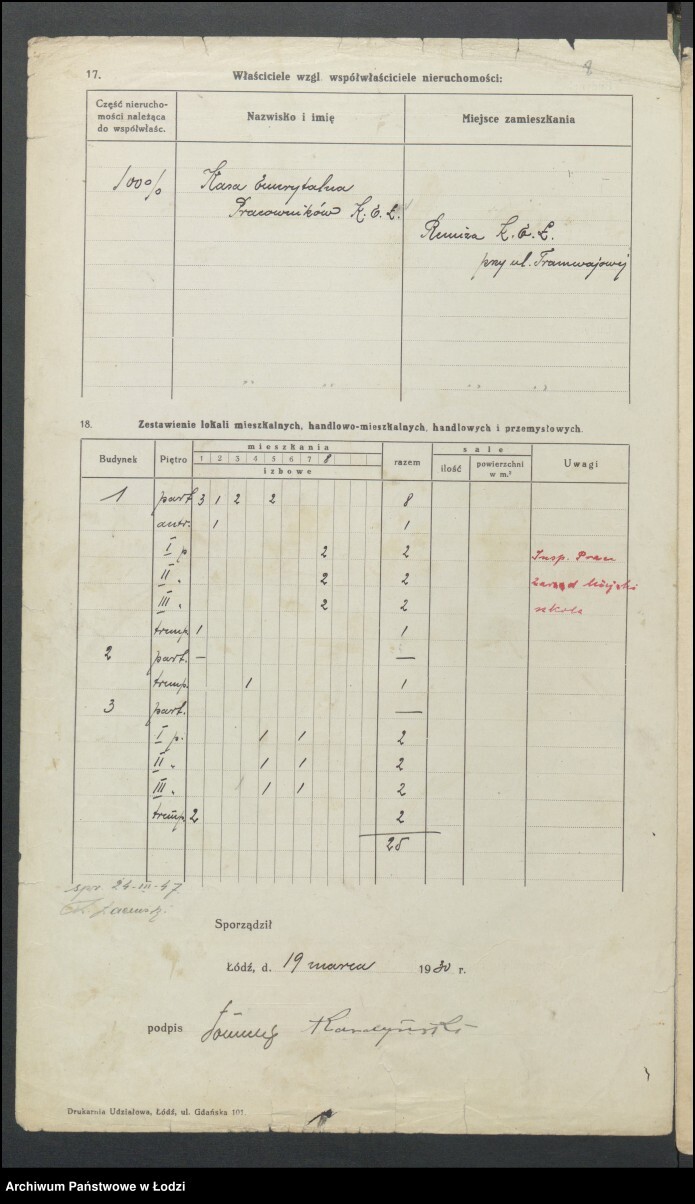 17. Właściciele wzgl. współwłaściciele nieruchomości:
Część nierucho-
mości należąca
do współwłaśc.
Nazwisko i imię
Miejsce zamieszkania
100%
Kasa Emerytalna
Pracowników K. E. Ł.
Remiza K. E. Ł.
przy ul. Tramwajowej
18. Zestawienie lokali mieszkalnych, handlowo-mieszkalnych, handlowych i przemysłowych.
Budynek Piętro mieszkania razem sale Uwagi
1 2 3 4 5 6 7 8
izbowe
ilość powierzchni w m.²
1 part. 3 1 2 2 8
antr. 1 1
I p. 2 2 Insp. Prac
II " 2 2 Zarząd Miejski
III " 2 2 szkoła
tremp. 1 1
2 part. — —
tremp. 1 1
3 part. —
I p. 1 1 2
II " 1 1 2
III " 1 1 2
tremp. 2 2
25
spr. 24-III-47
Sporządził
Łódź, d. 19 marca 1930 r.
podpis
Drukarnia Udziałowa, Łódź, ul. Gdańska 101.
Archiwum Państwowe w Łodzi